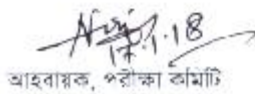 17.1.18
আহবায়ক, পরীক্ষা কমিটি